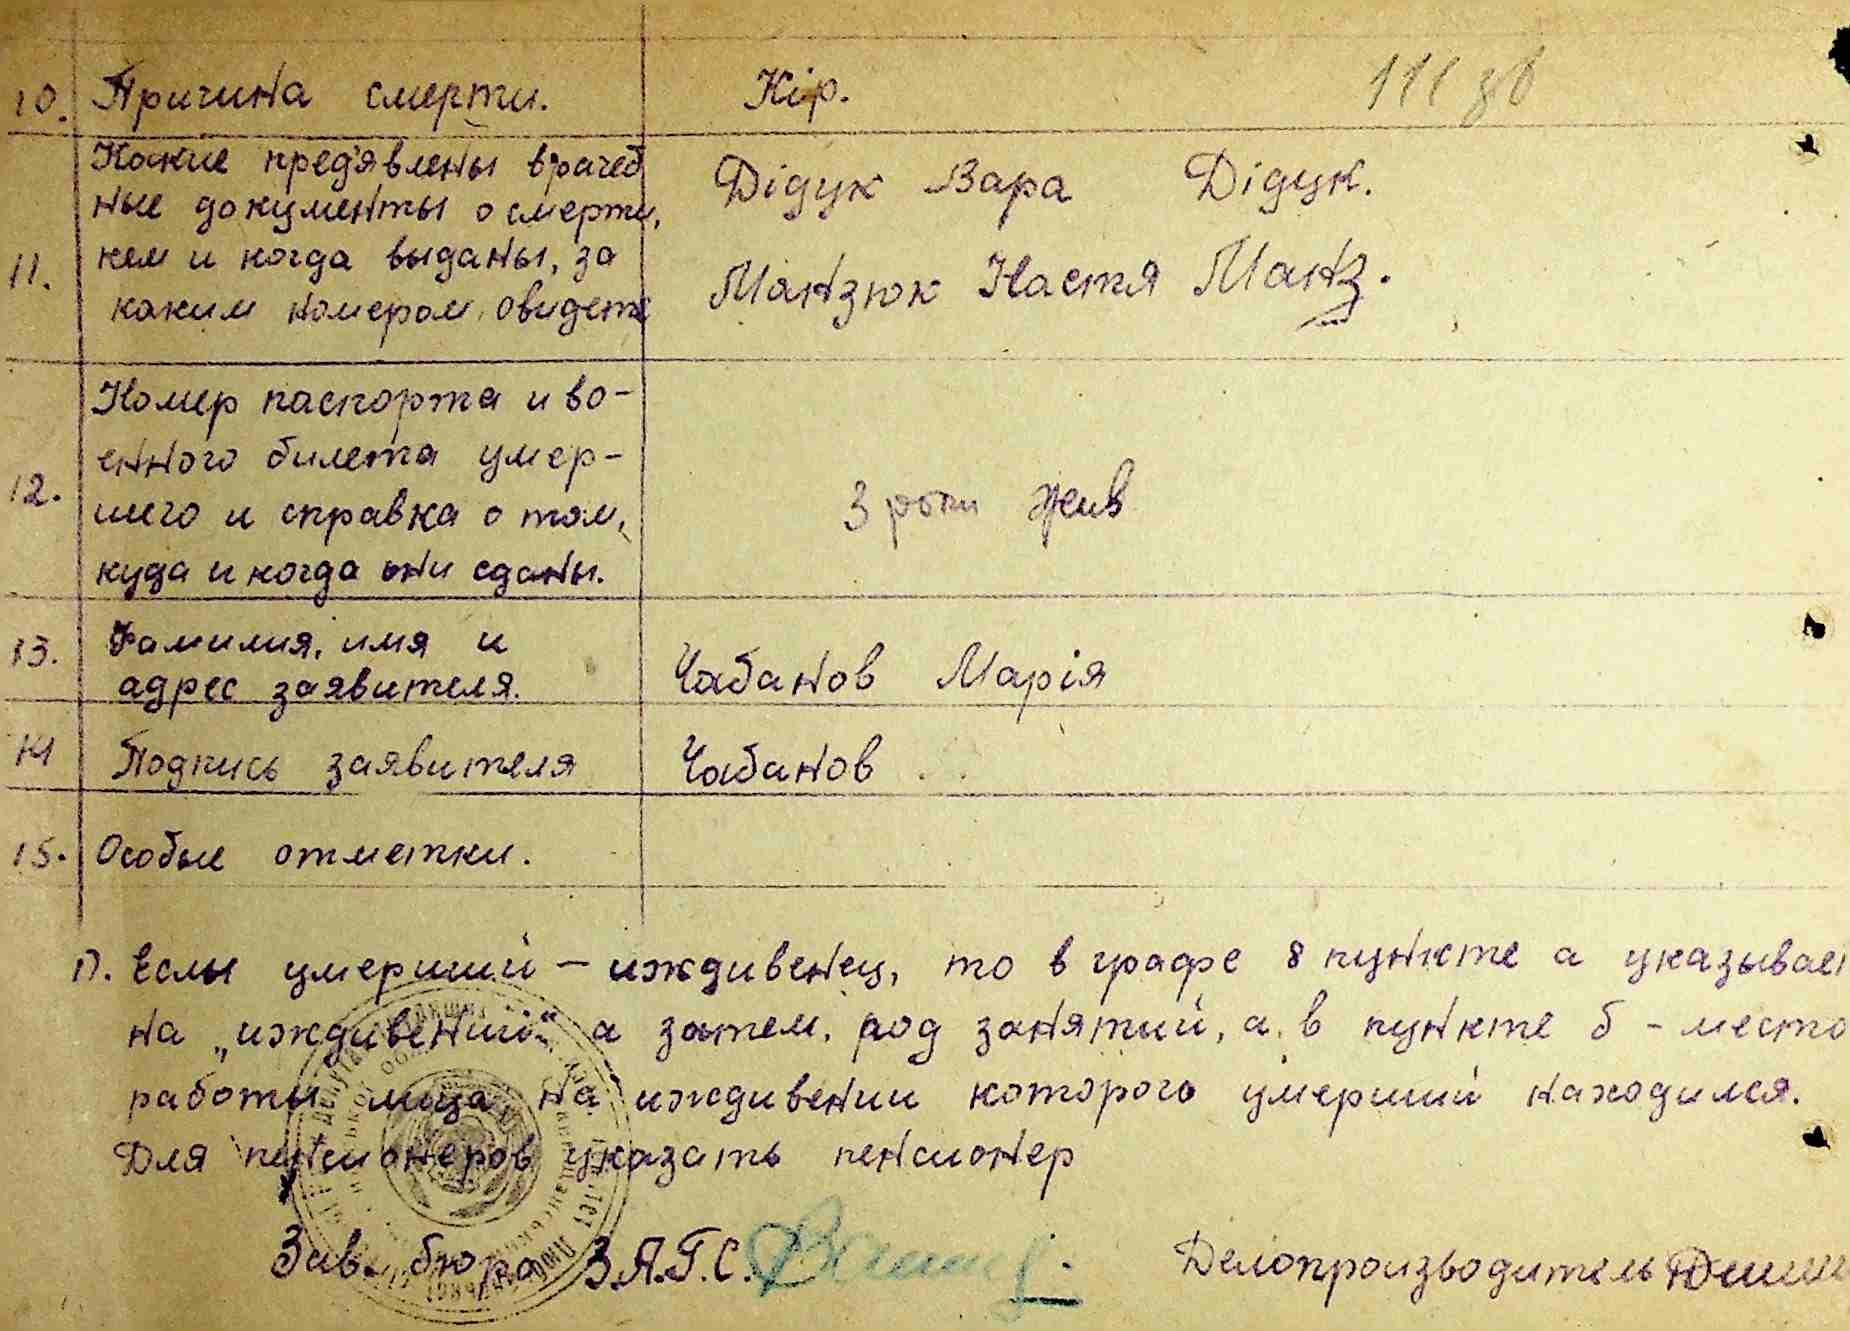 111 зв
10. Причина смерти. Кір.
Какие пред'явлены врачеб
ные документы о смерти,
11. кем и когда выданы, за
каким номером, свидете
Дідук Вара Дідук.
Манзюк Настя Манз.
Номер паспорта и во-
енного билета умер-
12. шего и справка о том,
куда и когда они сданы.
3 роки жив
13. Фамилия, имя и
адрес заявителя. Чабанов Марія
14 Подпись заявителя Чабанов
15. Особые отметки.
1). Еслы умерший – иждивенец, то в графе 8 пункте а указывает
на „иждивений" а затем, род занятий, а в пункте б - место
работы лица, на иждивении которого умерший находился.
Для пенсионеров указать пенсионер
Зав. бюро З.А.Г.С. Делопроизводитель